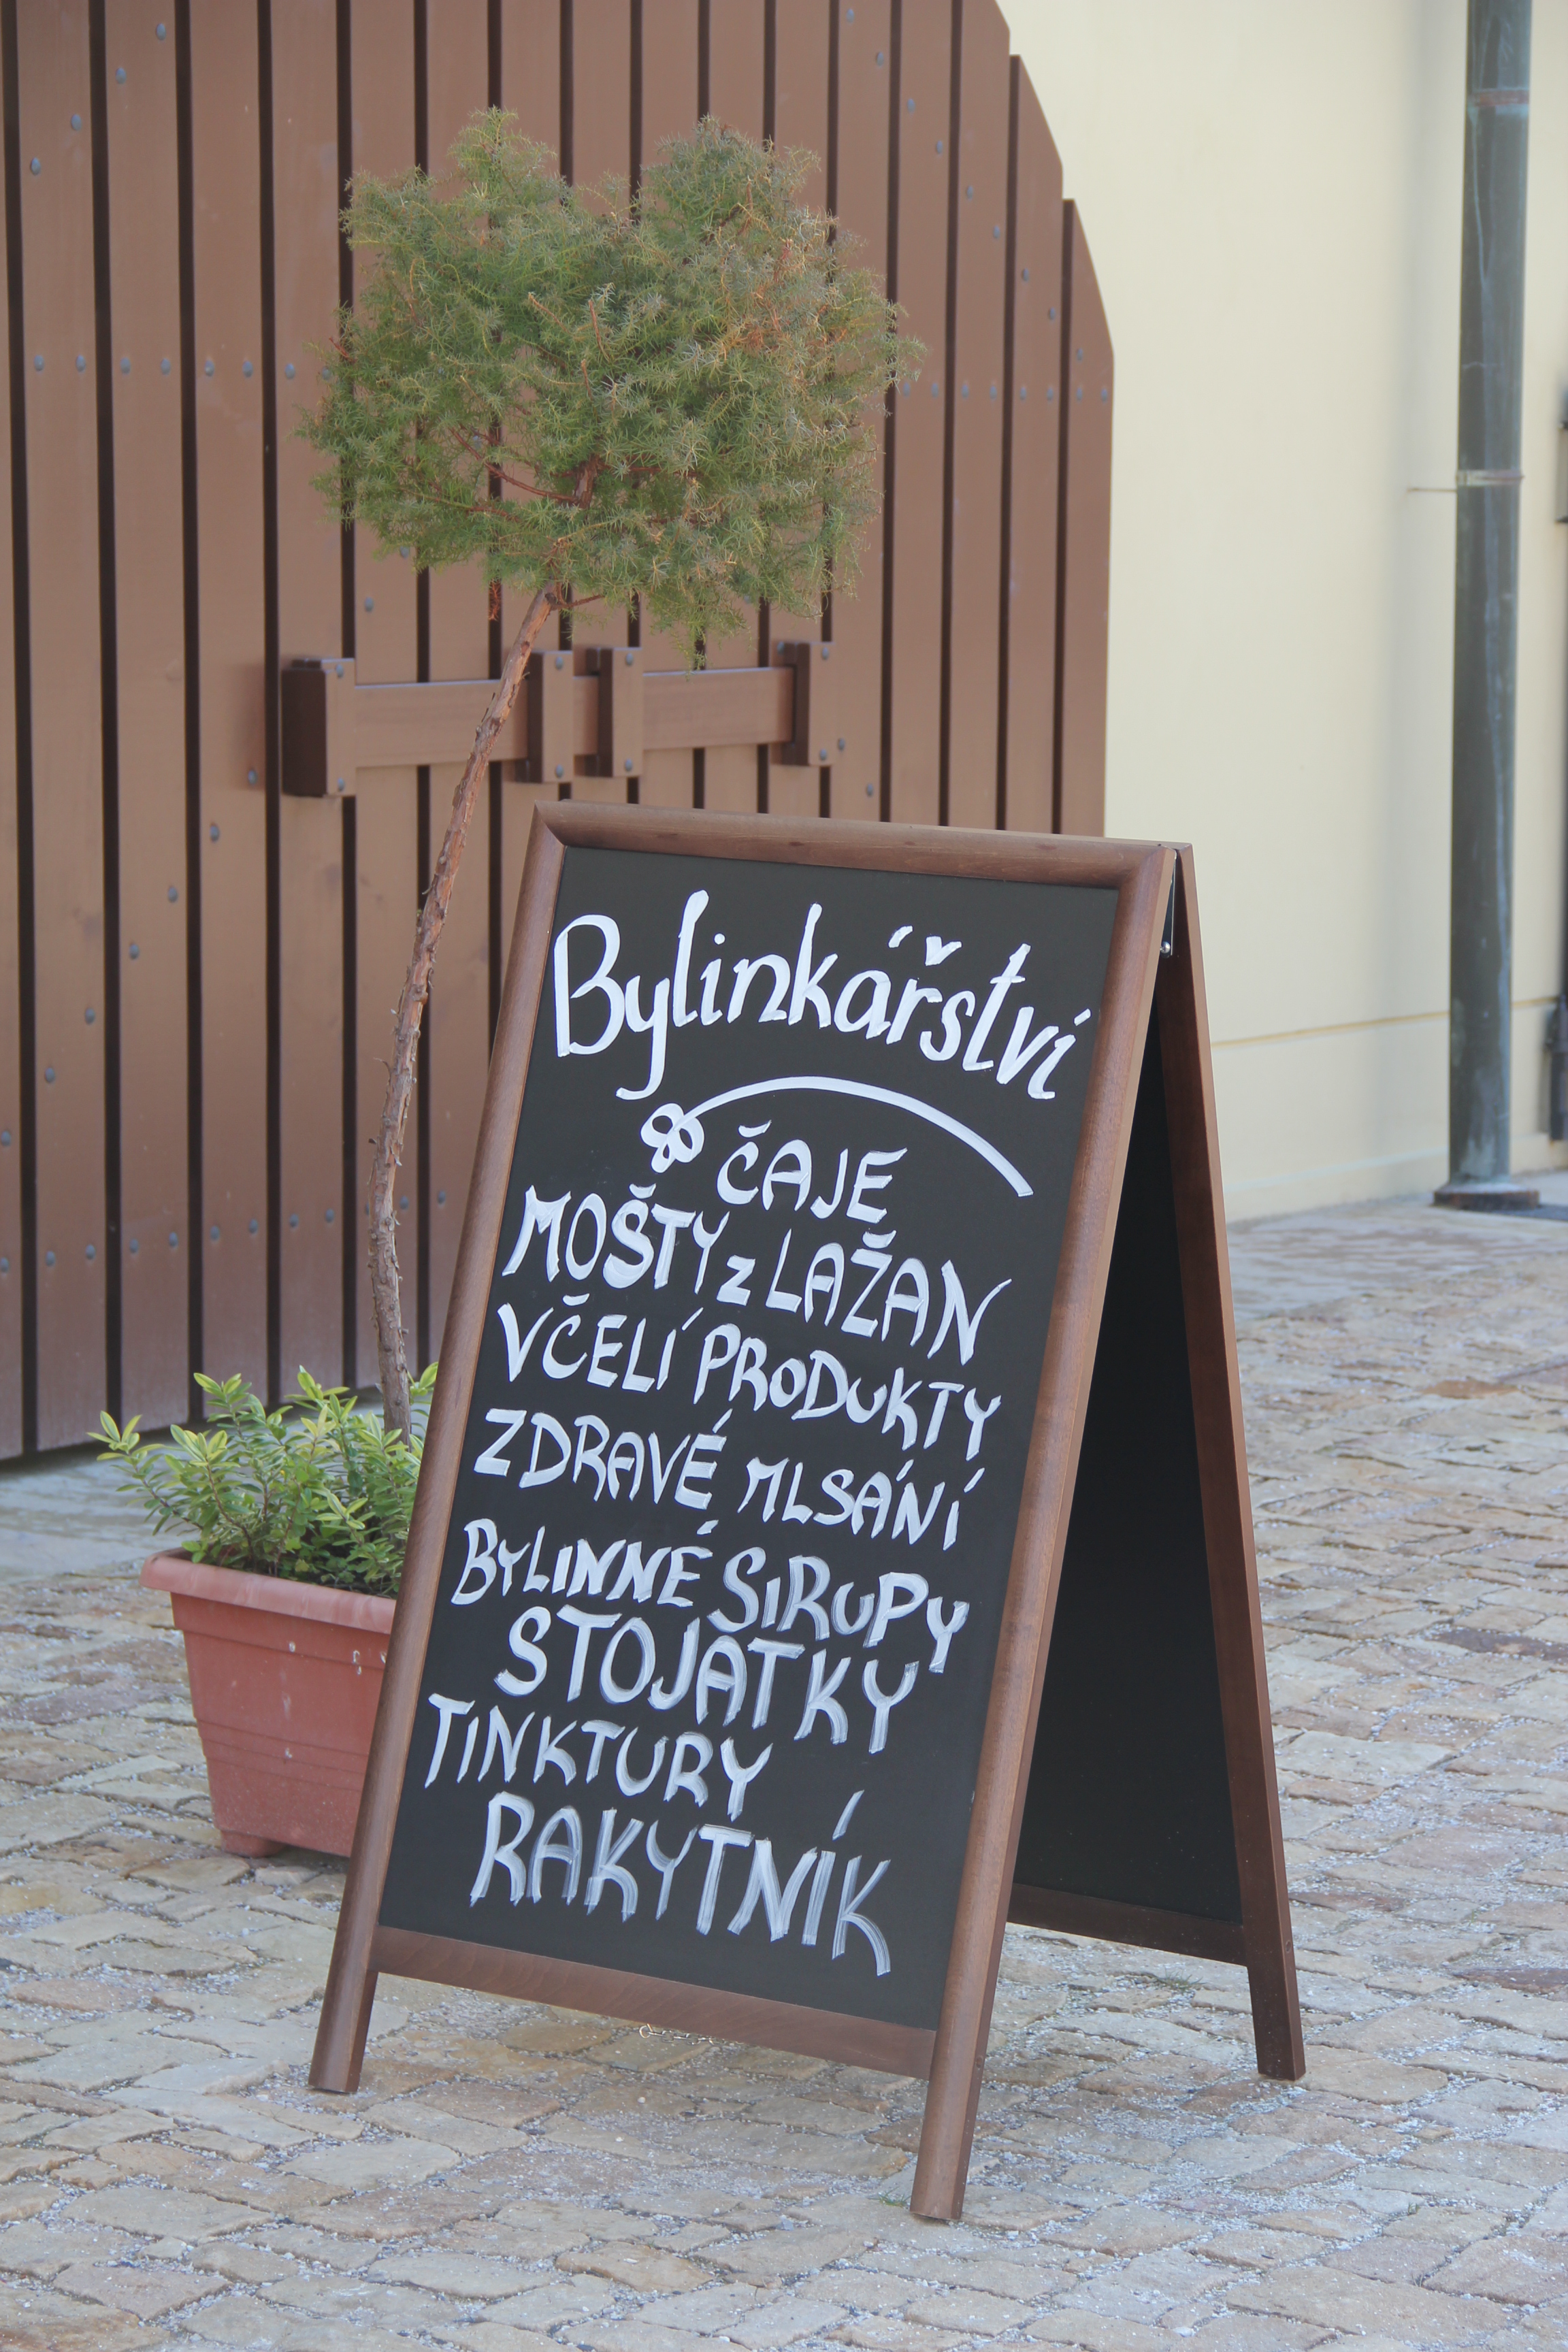 Bylinkářství
ČAJE
MOŠTY z LAŽAN
VČELÍ PRODUKTY
ZDRAVÉ MLSÁNÍ
BYLINNÉ SIRUPY
STOJATKY
TINKTURY
RAKYTNÍK